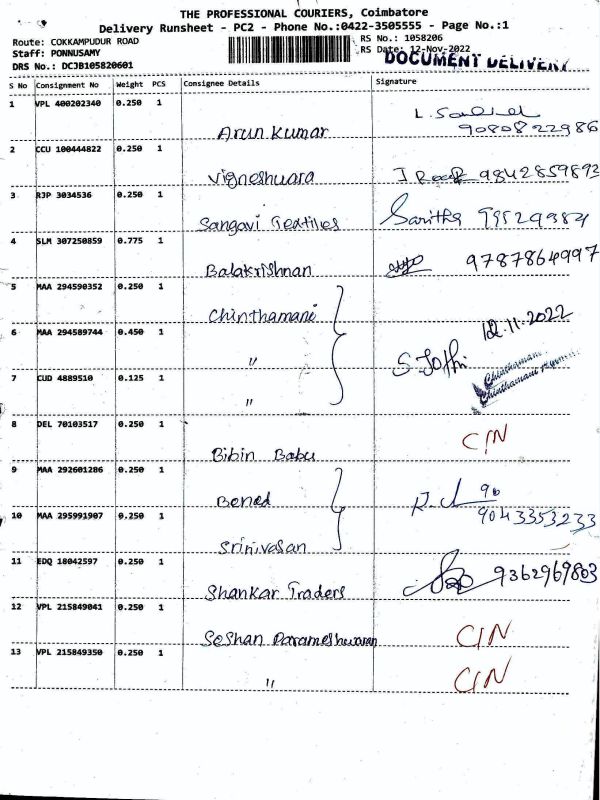 THE PROFESSIONAL COURIERS, Coimbatore
Delivery Runsheet - PC2 - Phone No.:0422-3505555 - Page No.:1
Route: COKKAMPUDUR ROAD
RS No.: 1058206
Staff: PONNUSAMY
RS Date: 12-Nov-2022
DRS No.: DCJB105820601
DOCUMENT DELIVERY
S No Consignment No Weight PCS Consignee Details Signature
1 VPL 400202340 0.250 1
Arun Kumar 9080822986
2 CCU 100444822 0.250 1
Vigneshwara 9842859892
3 RJP 3034536 0.250 1
Sangavi Textiles Saritha
4 SLM 307250859 0.775 1
Balakrishnan 9787864997
5 MAA 294590352 0.250 1
Chinthamani
12.11.2022
6 MAA 294589744 0.450 1
" S. Jothi
7 CUD 4889510 0.125 1
"
Chinthamani
Chinthamani
8 DEL 70103517 0.250 1
Bibin Babu C/N
9 MAA 292601286 0.250 1
Bened
90
10 MAA 295991907 0.250 1
9043353233
Srinivasan
11 EDQ 18042597 0.250 1
Shankar Traders 9362969803
12 VPL 215849041 0.250 1
Seshan Parameshwaran C/N
13 VPL 215849350 0.250 1
" C/N